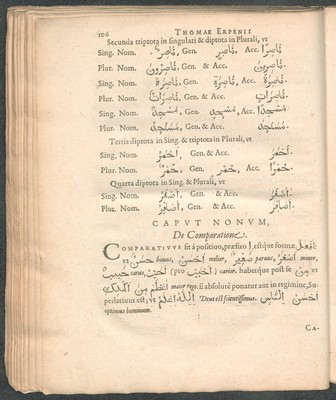 106 THOMAE ERPENII
Secunda triptota in singulari & diptota in Plurali, vt
Sing. Nom. نَاصِرٌ, Gen. نَاصِرٍ, Acc. نَاصِرًا.
Plur. Nom. نَاصِرُونَ, Gen. & Acc. نَاصِرِينَ.
Sing. Nom. نَاصِرَةٌ, Gen. نَاصِرَةٍ, Acc. نَاصِرَةً.
Plur. Nom. نَاصِرَاتٌ, Gen. & Acc. نَاصِرَاتٍ.
Sing. Nom. مَسْجِدٌ, Gen. مَسْجِدٍ, Acc. مَسْجِدًا.
Plur. Nom. مَسَاجِدُ, Gen. & Acc. مَسَاجِدَ.
Tertia diptota in Sing. & triptota in Plurali, vt
Sing. Nom. أَحْمَرُ, Gen. & Acc. أَحْمَرَ.
Plur. Nom. حُمْرٌ, Gen. حُمْرٍ, Acc. حُمْرًا.
Quarta diptota in Sing. & Plurali, vt
Sing. Nom. Gen. & Acc.
Plur. Nom. Gen. & Acc.
CAPVT NONVM,
De Comparatione.
COMPARATIVVS fit à positiuo, præfixo أ, estque formæ أَفْعَلُ
vt حَسَنٌ bonus, أَحْسَنُ melior, صَغِيرٌ paruus, أَصْغَرُ minor,
حَبِيبٌ carus, أَحَبُّ (pro أَحْبَبُ) carior. habetque post se مِنْ vt
أَعْظَمُ مِنَ الْمَلِكِ maior rege. si absolutè ponatur aut in regimine, Su-
perlatiuus est; vt اَللّٰهُ أَعْلَمُ Deus est scientissimus. أَحْسَنُ النَّاسِ
optimus hominum.
CA-